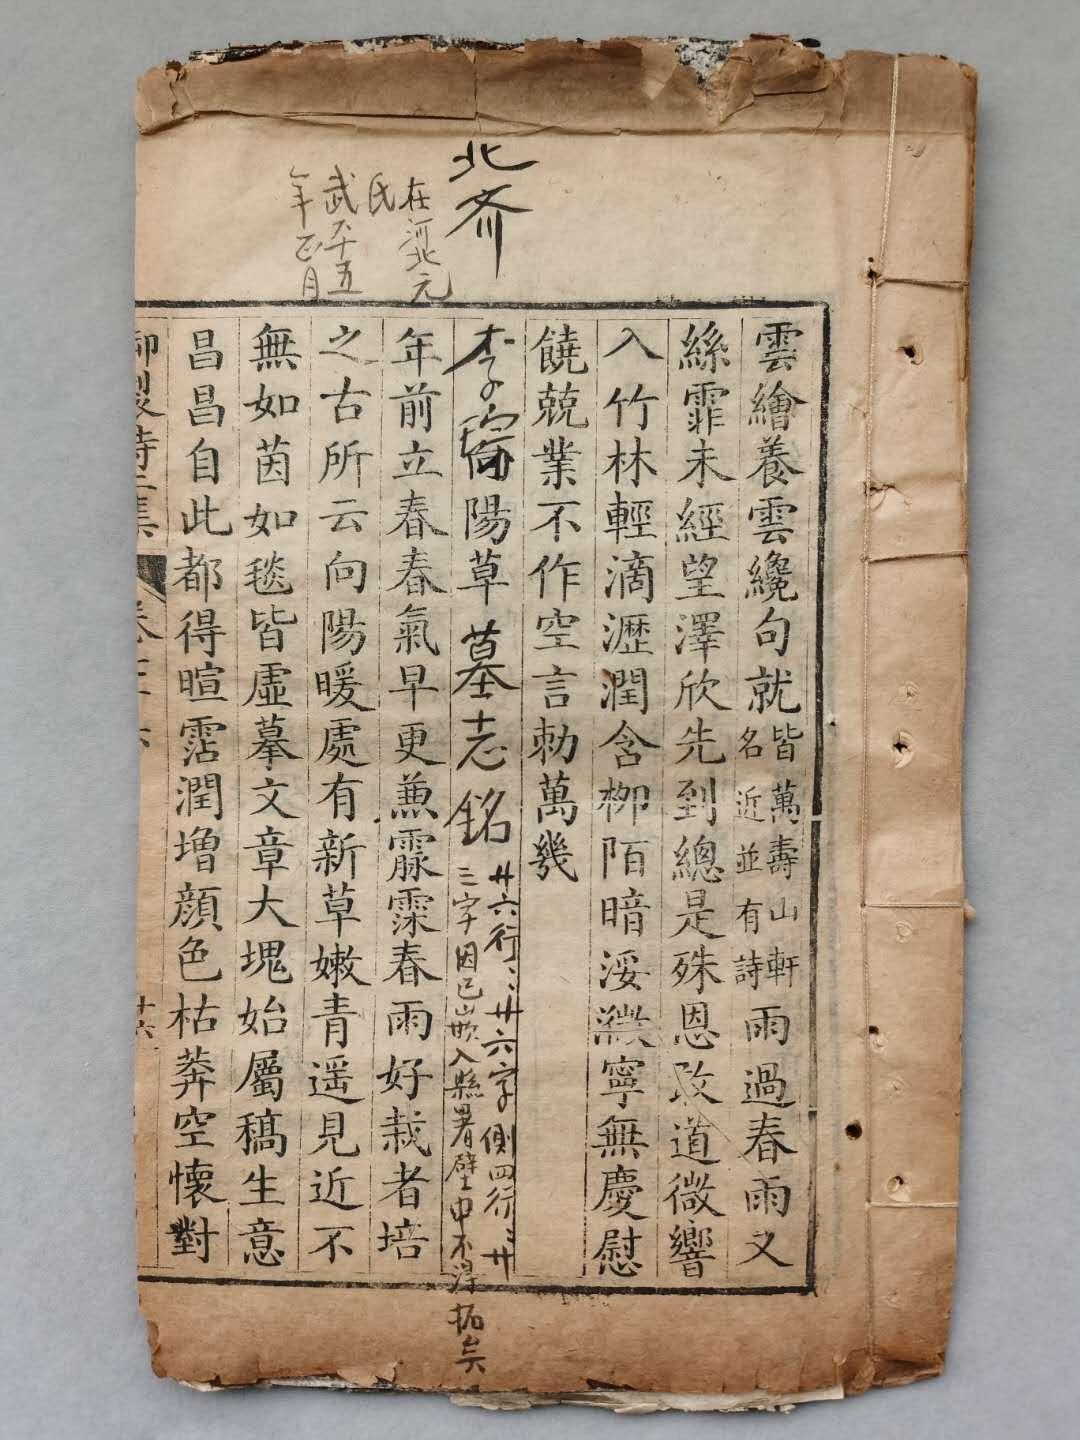 北齐
在河北元
氏
武平五
年正月
雲繪養雲纔句就皆萬壽山軒名近並有詩雨過春雨又
絲霏未經望澤欣先到總是殊恩敢道微響
入竹林輕滴瀝潤含柳陌暗溼濛寧無慶慰
饒兢業不作空言勑萬幾
向陽草
李 墓志銘
廿六行〻廿六字側四行〻廿
三字因已嵌入縣署壁中不得拓矣
年前立春春氣早更兼霢霂春雨好栽者培
之古所云向陽暖處有新草嫩青遥見近不
無如茵如毯皆虛摹文章大塊始屬稿生意
昌昌自此都得暄霑潤增顔色枯莽空懷對
御製詩集
十六